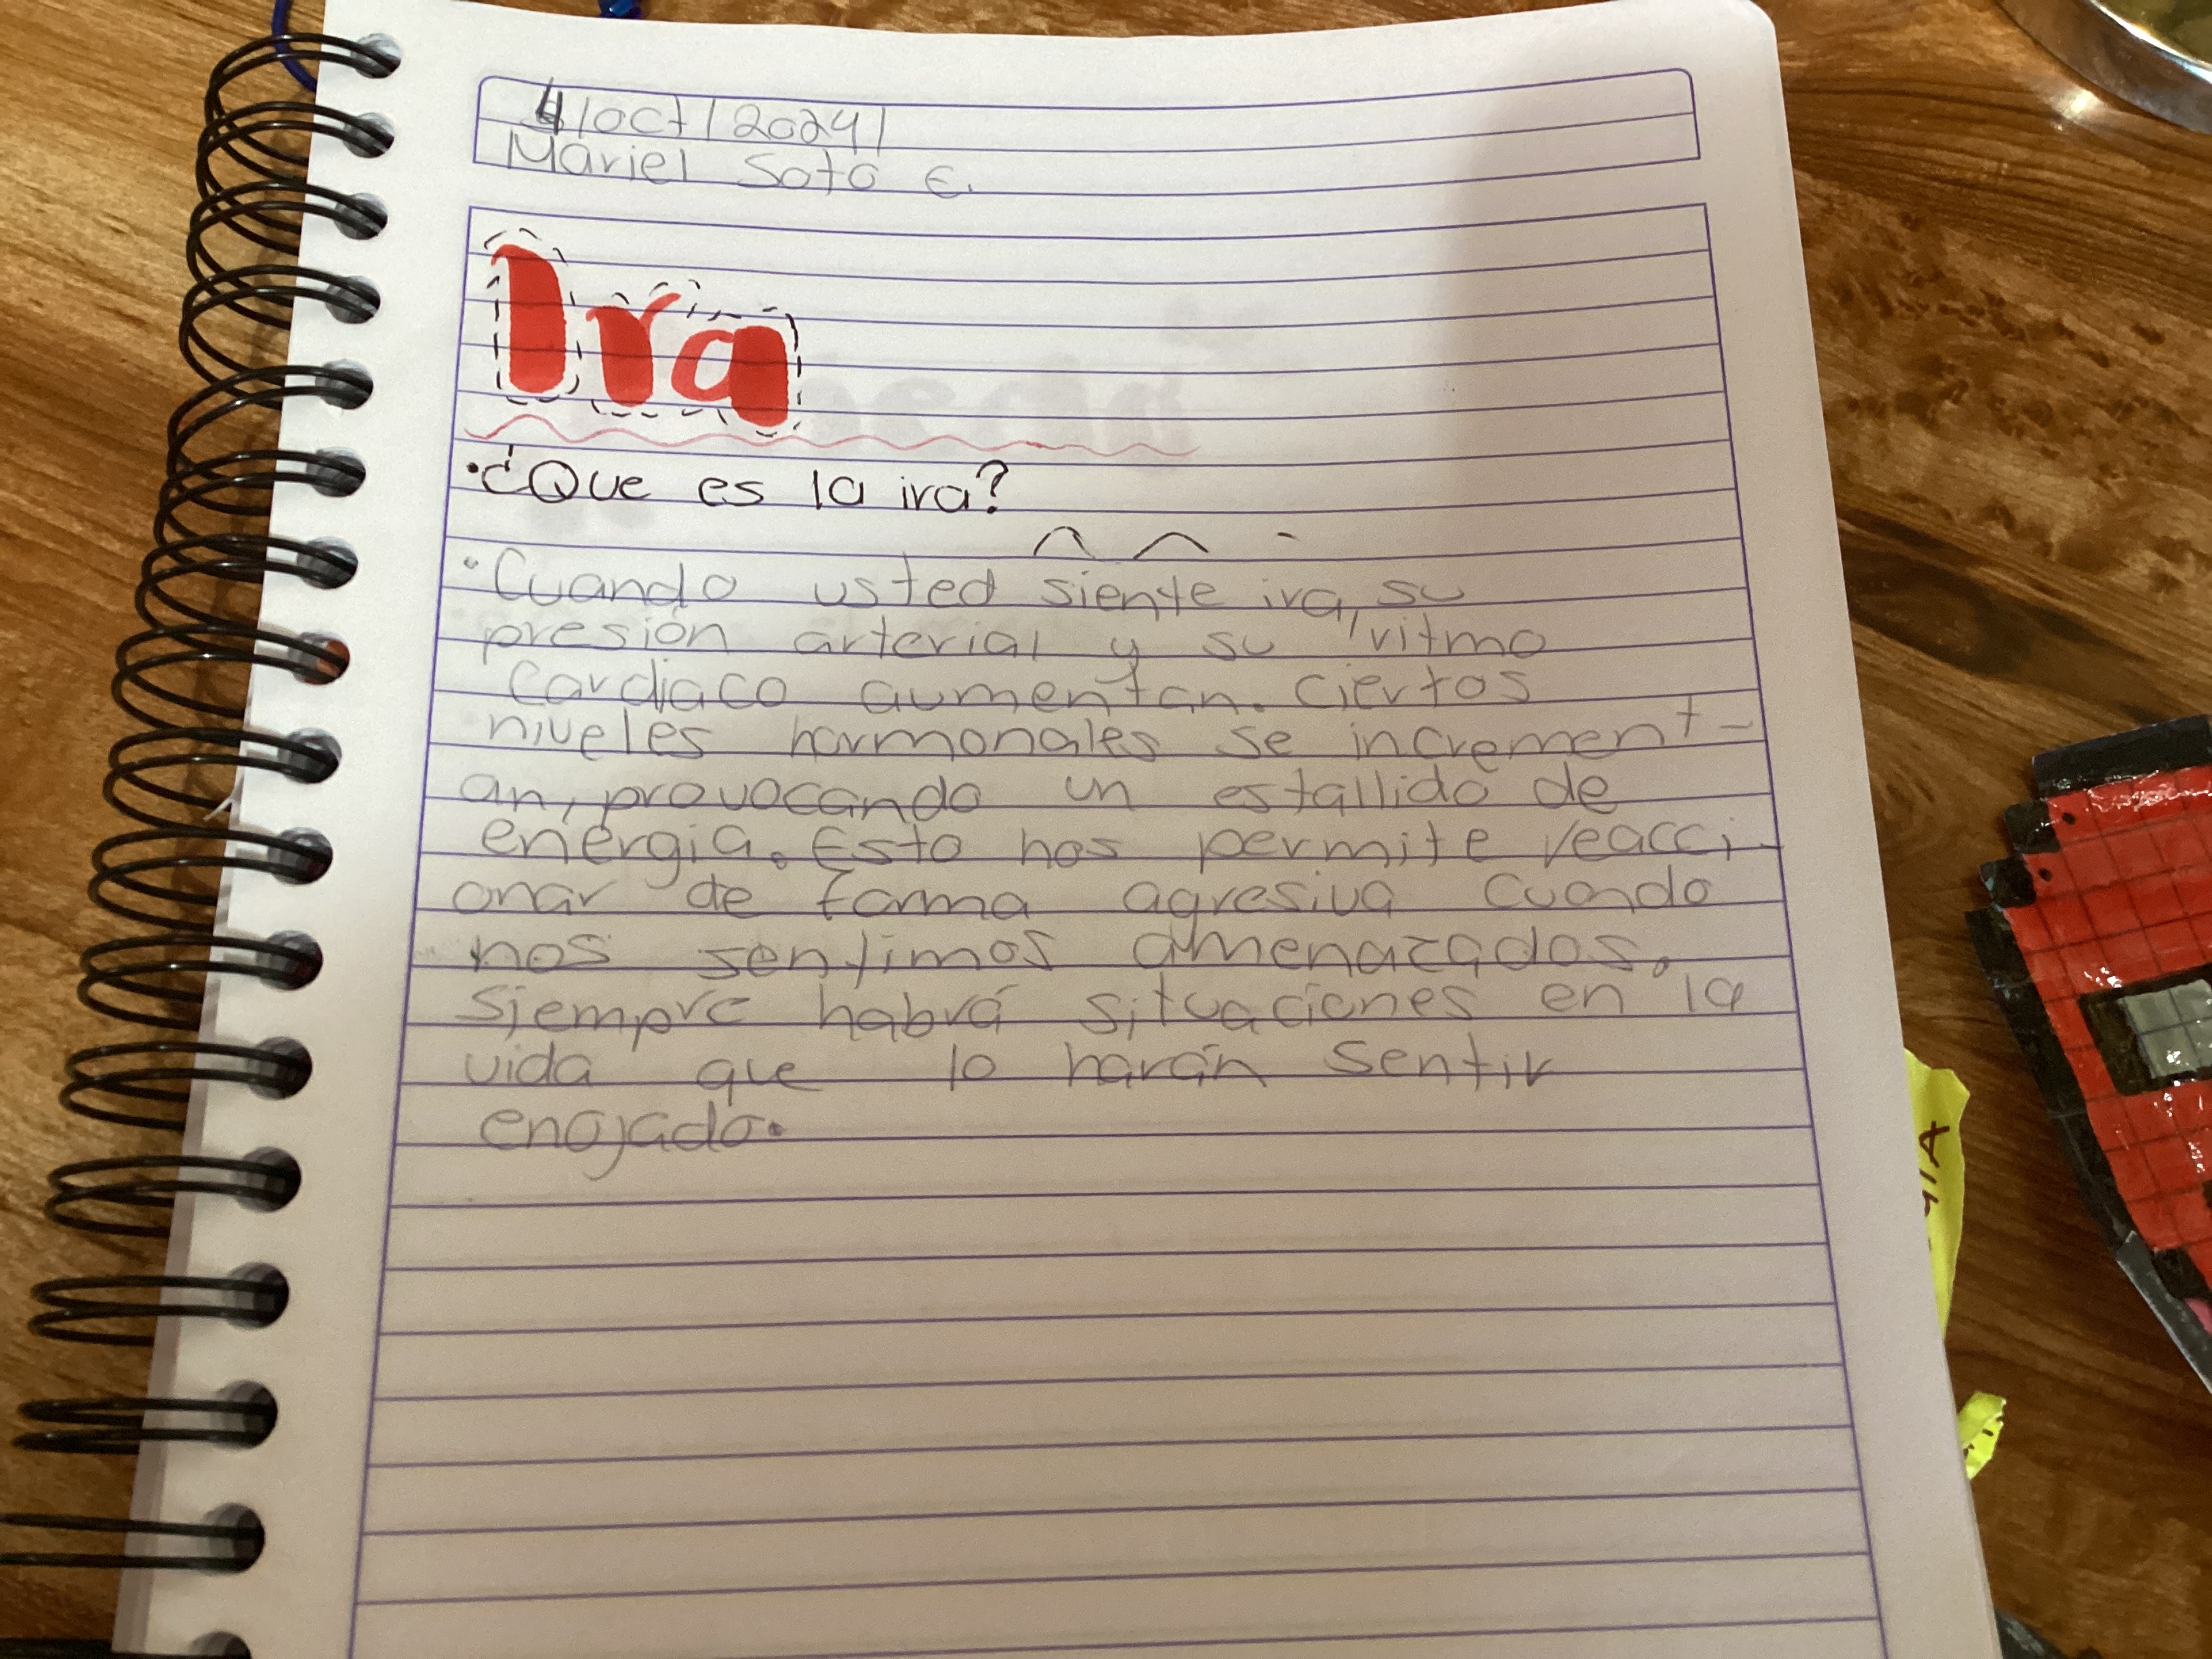 4/oct/2024/
Mariel Soto E.
Ira
·¿Que es la ira?
·Cuando usted siente ira, su
presión arterial y su ritmo
Cardiaco aumentan. Ciertos
niveles hormonales se increment-
an, provocando un estallido de
energia. Esto nos permite reacci-
onar de forma agresiva cuando
nos sentimos amenazados.
Siempre habrá situaciones en la
vida que lo harán sentir
enojado.